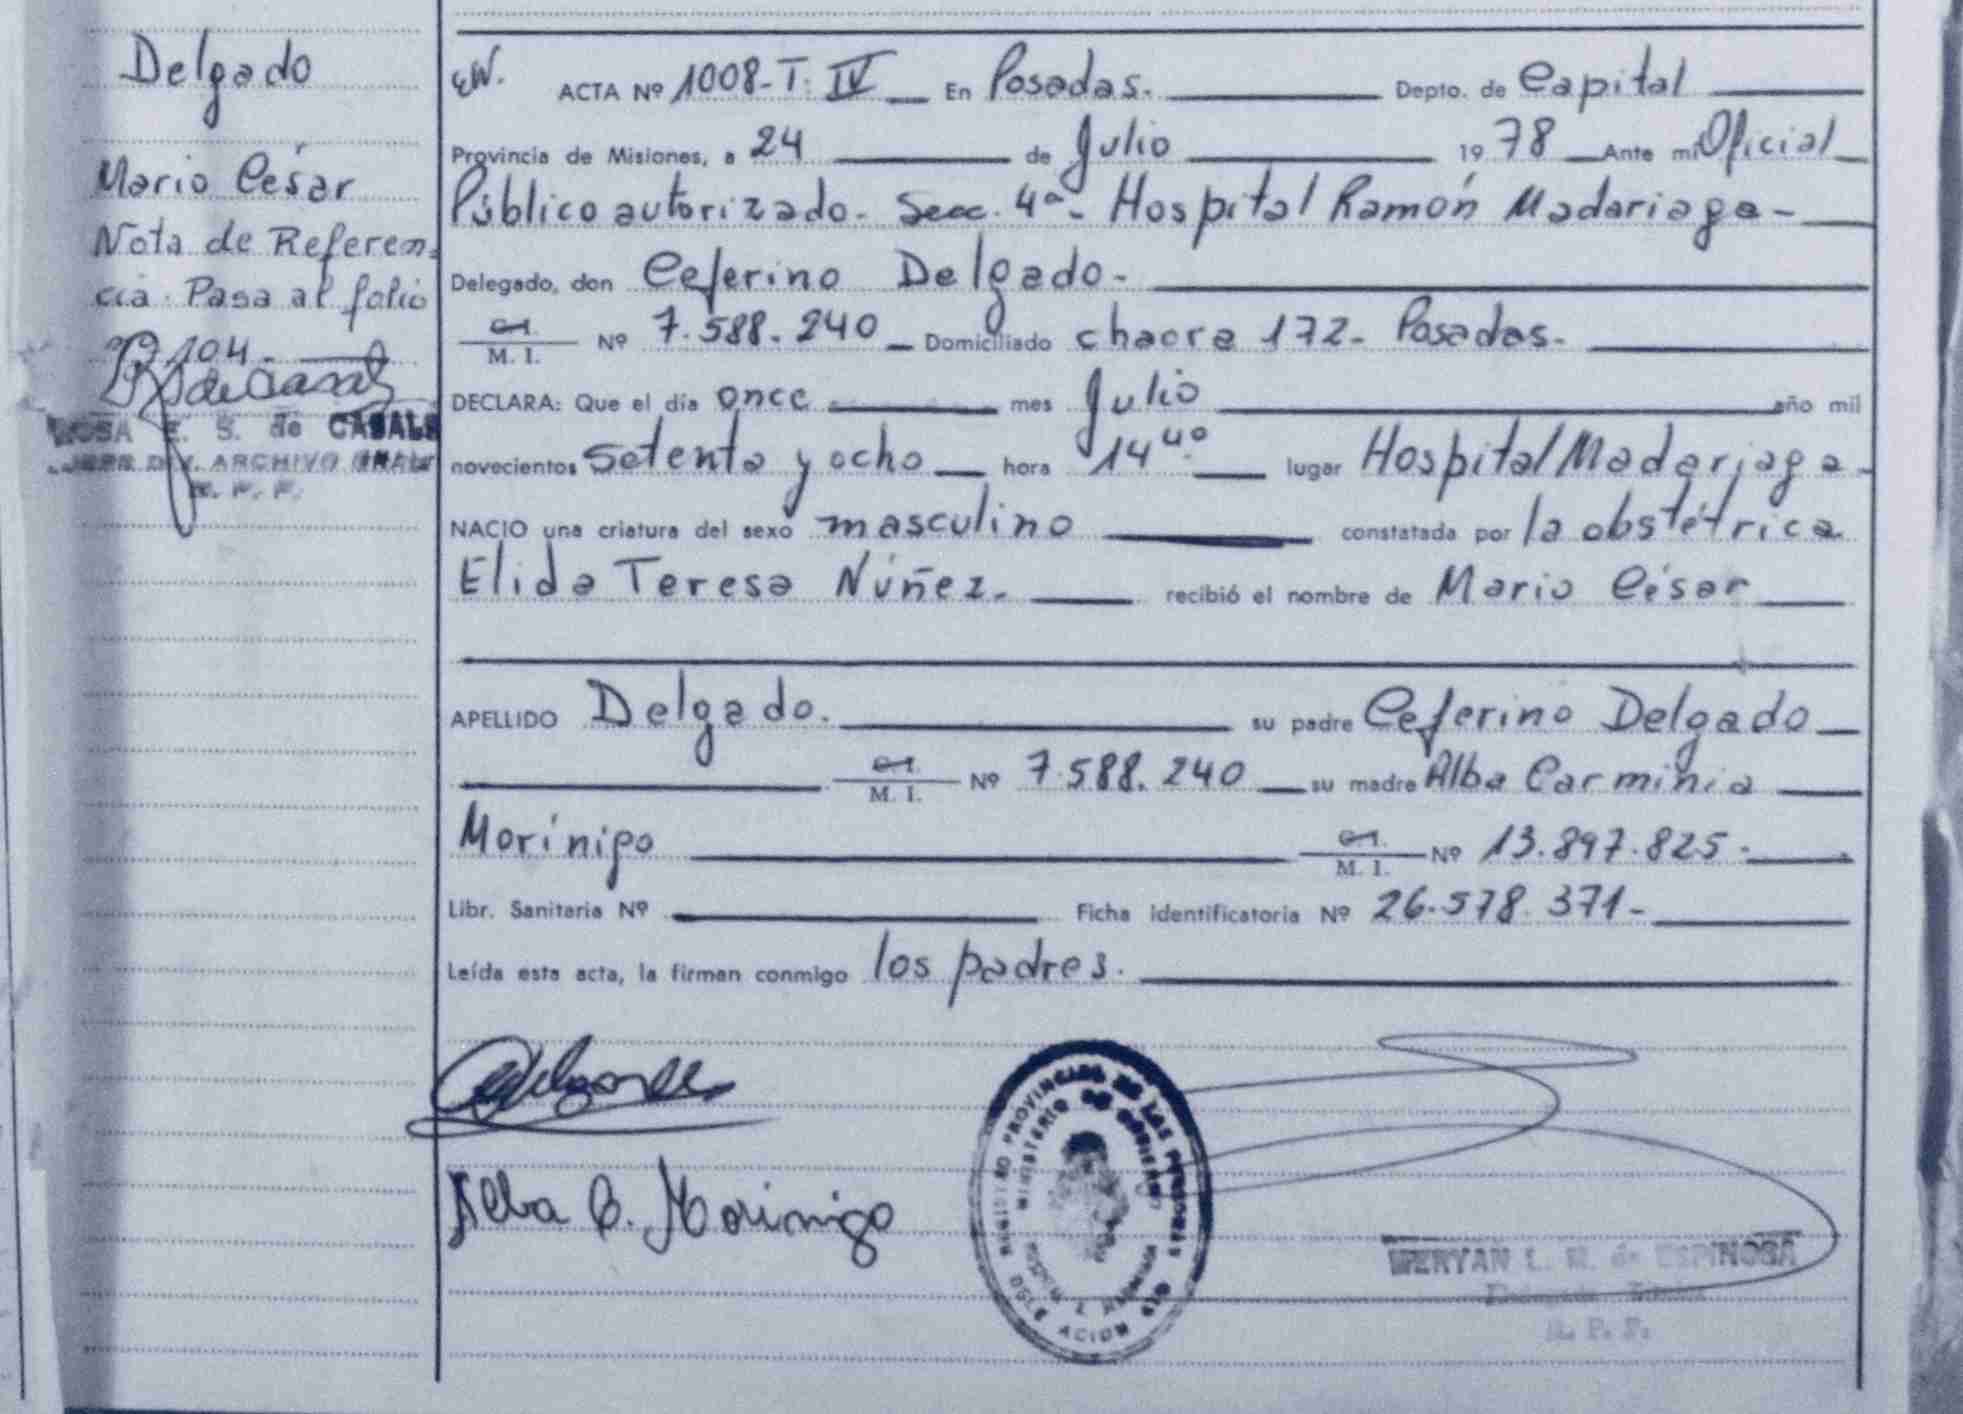 Delgado
Mario César
Nota de Referen-
cia. Pasa al folio
104.
ROSA E. S. de CASALS
JEFE DIV. ARCHIVO GRAL
R. P. P.
ACTA Nº 1008-T. IV En Posadas. Depto. de Capital
Provincia de Misiones, a 24 de Julio 1978 Ante mi Oficial
Público autorizado. Secc. 4ª- Hospital Ramón Madariaga-
Delegado, don Ceferino Delgado.
C.I.
M. I. Nº 7.588.240 Domiciliado chacra 172- Posadas.
DECLARA: Que el día once mes Julio año mil
novecientos setenta y ocho hora 14 40 lugar Hospital Madariaga-
NACIO una criatura del sexo masculino constatada por la obstétrica
Elida Teresa Núñez. recibió el nombre de Mario César
APELLIDO Delgado. su padre Ceferino Delgado
C.I.
M. I. Nº 7.588.240 su madre Alba Carminia
Morínigo C.I.
M. I. Nº 13.897.825-
Libr. Sanitaria Nº Ficha Identificatoria Nº 26.578.371-
Leída esta acta, la firman conmigo los padres.
Alba C. Morinigo
REGISTRO PROVINCIAL DE LAS PERSONAS
MINISTERIO DE GOBIERNO
MERYAN L. M. de ESPINOSA
R. P. P.